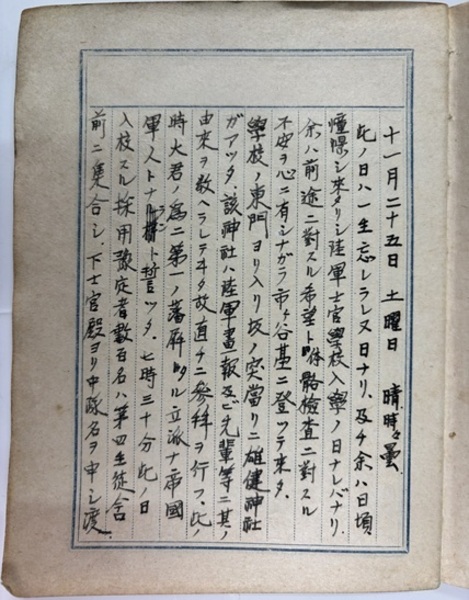 十一月二十五日　土曜日　晴時々曇
此ノ日ハ一生忘レラレヌ日ナリ。及チ余ハ日頃
憧憬シ來タリシ陸軍士官學校入學ノ日ナレバナリ
余ハ前途ニ對スル希望ト体骼檢査ニ對スル
不安ヲ心ニ有シナガラ市ヶ谷基ニ登ツテ來タ。
學校ノ東門ヨリ入リ坂ノ突當リニ雄健神社
ガアツタ、該神社ハ陸軍畫報及ビ先輩等ニ其ノ
由來ヲ教ヘラレテヰタ故直チニ參拜ヲ行フ、此ノ
時大君ノ為ニ第一ノ藩屏タル立派ナ帝國
軍人トナラント誓ツタ。七時三十分此ノ日
入校スル採用豫定者數百名ハ第四生徒舎
前ニ集合シ、下士官殿ヨリ中隊名ヲ申シ渡